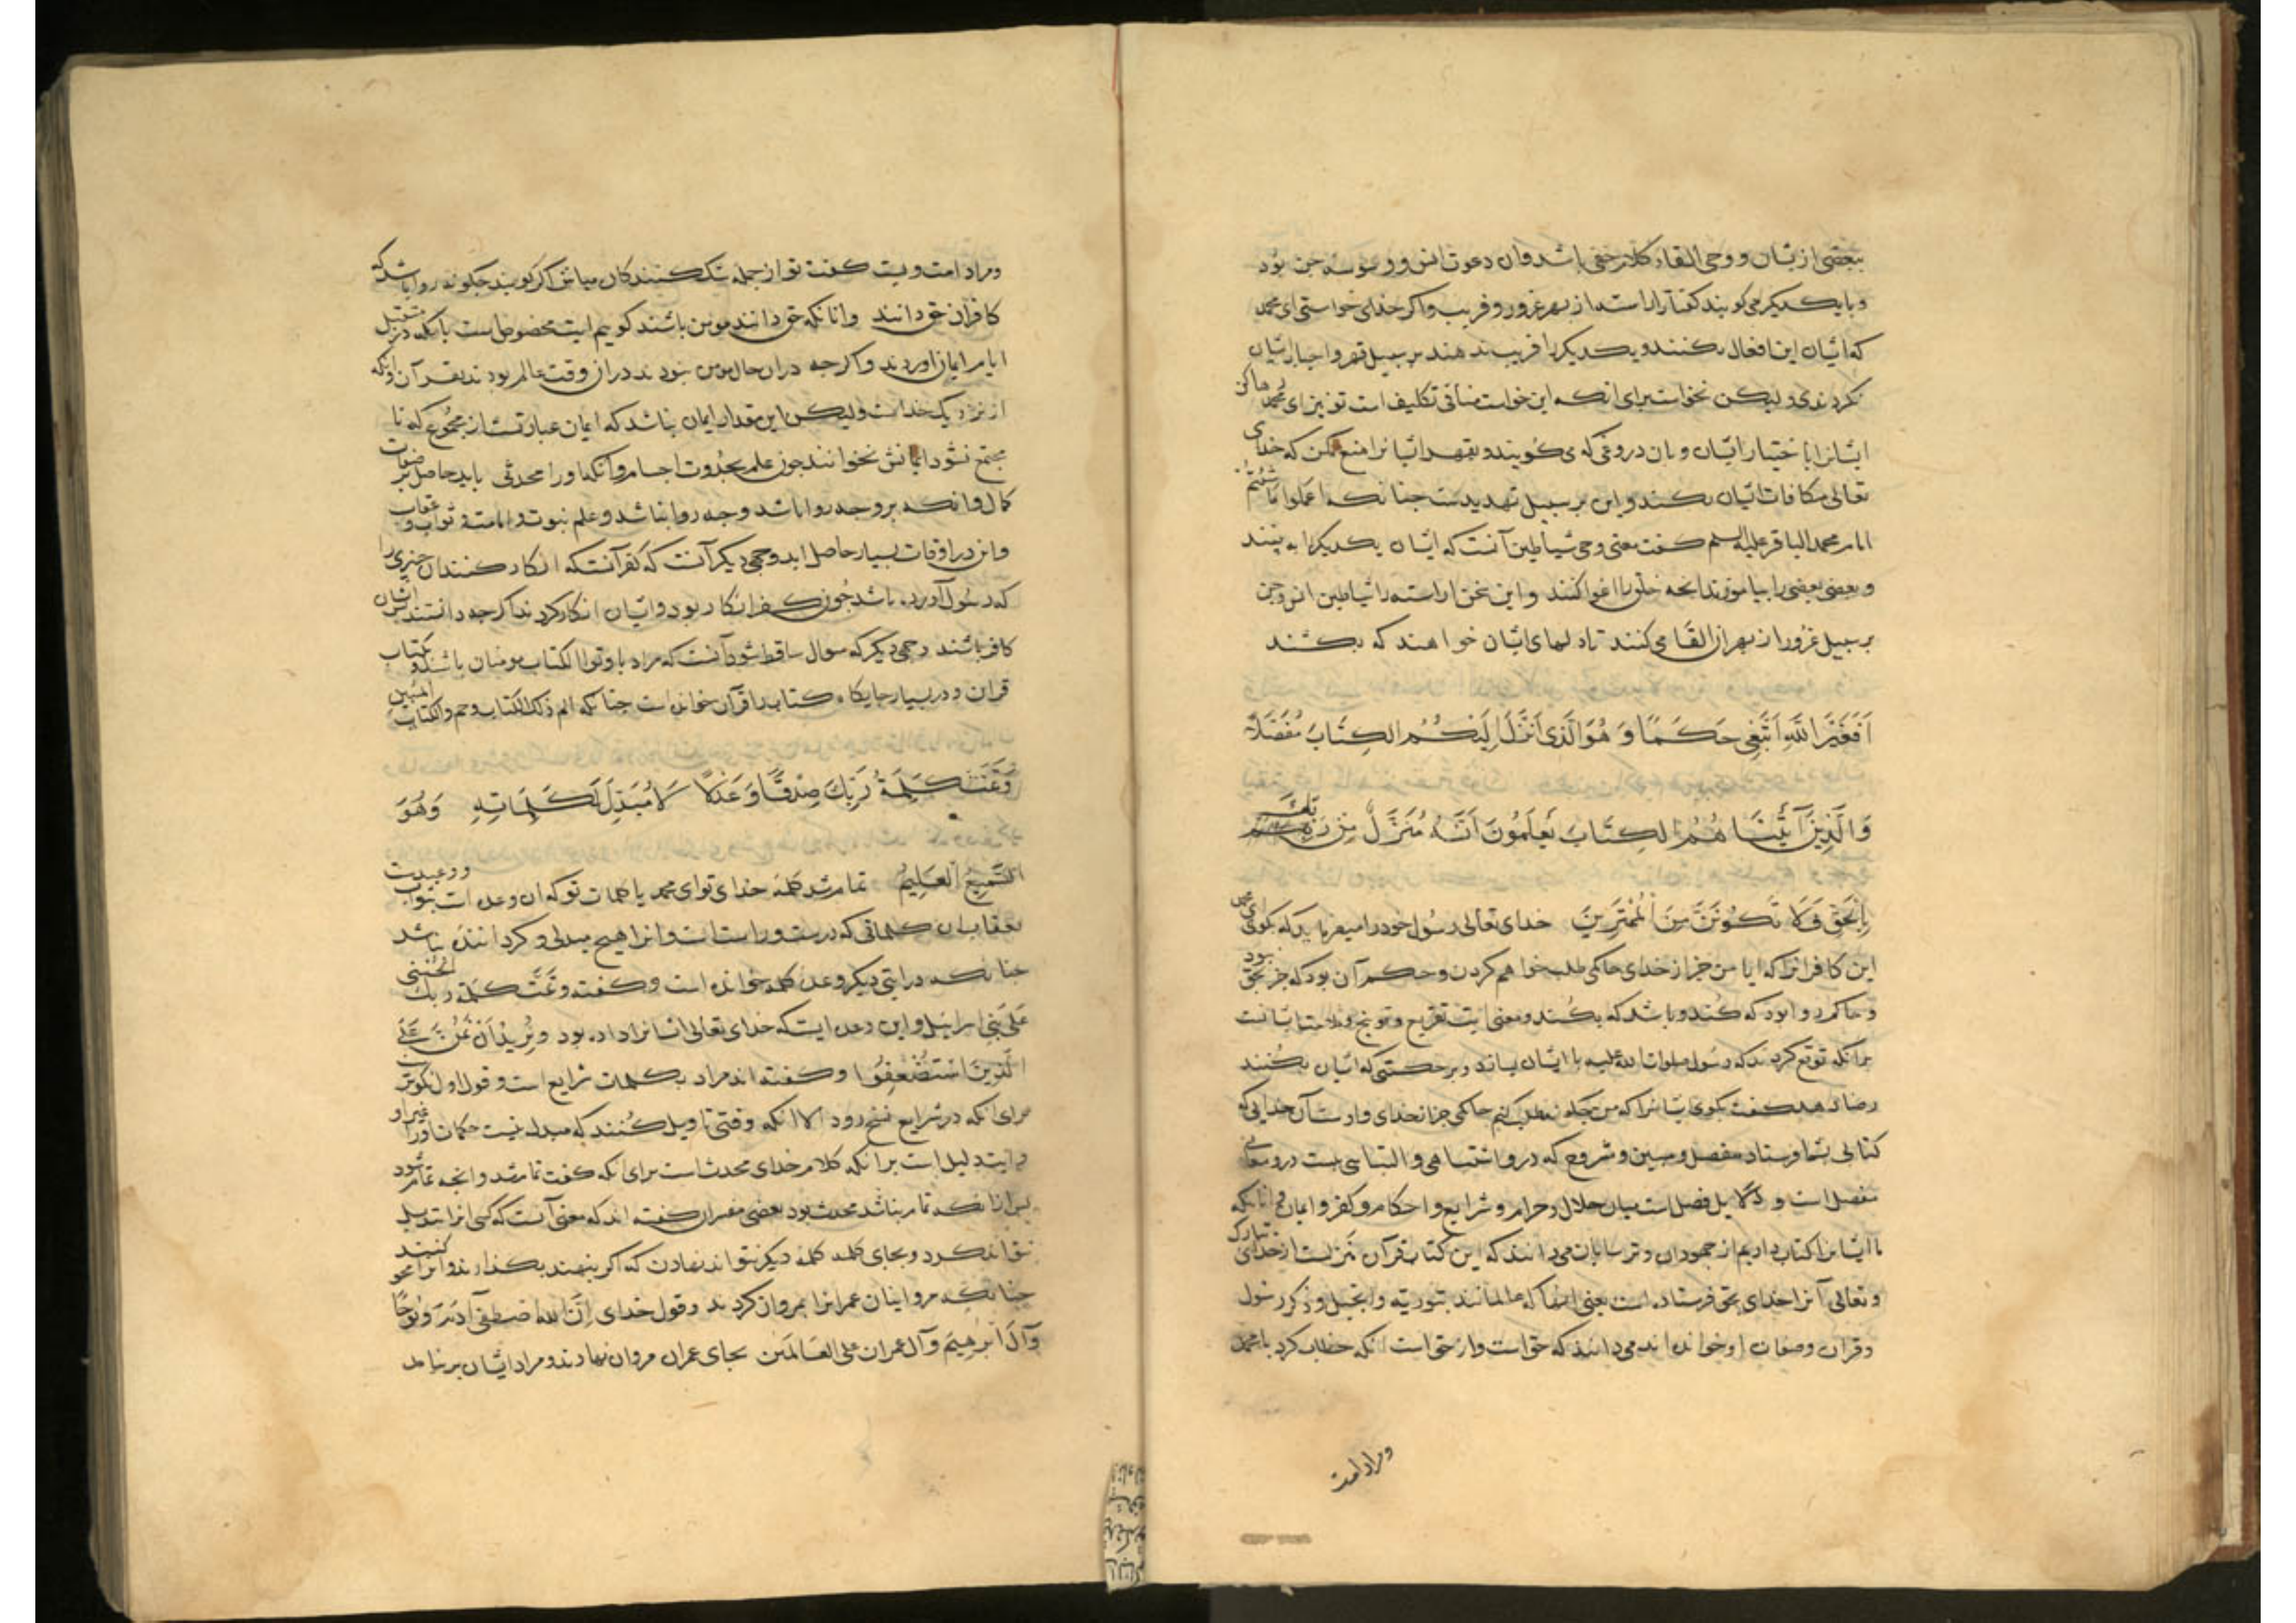 بعضی از یشان و وحی القاء کلام خفی باشد وان دعوت انس و وسوسه جن بود
و با یکدیگر می کویند کفتار اراسته از بهر غرور و فریب و اکر خدای خواستی ای محمد
که ایشان این افعال نکنند و یکدیکر را فریب ندهند بر سبیل قهر و اجبار ایشان
نکردندی و لیکن نخواست برای انکه این خواست منافی تکلیف است تو نیز ای محمد رها کن
ایشانرا با ختیار ایشان و بان دروغی که می کویند و بقهر ایشانرا منع مکن که خدای
تعالی مکافات ایشان بکند و این بر سبیل تهدیدست جنانکه اعملوا ما شئتم
امام محمد الباقر علیه السلم کفت معنی وحی شیاطین آنست که ایشان یکدیکر را به بینند
و بعضی بعضی را بیاموزند انجه خلق را اغوا کنند و این سخن اراسته را شیاطین انس و جن
بر سبیل غرور از بهر ان القا می کنند تا دلهای ایشان خواهند که بکشند
اَفَغَیْرَ اللّهِ اَبْتَغِی حَکَمًا وَ هُوَ الَّذی اَنْزَلَ اِلَیْکُمُ الکِتَابَ مُفَصَّلًا
وَ الَّذِینَ آتَیْنَاهُمُ الکِتَابَ یَعْلَمُونَ اَنَّهُ مُنَزَّلٌ مِن رَبِّکَ
بِالْحَقِّ فَلَا تَکُونَنَّ مِنَ الْمُمْتَرِینَ خدای تعالی رسول خود را میفرماید که بکوی ای محمد
این کافرانرا که ایا من جز از خدای حاکمی طلب خواهم کردن و حکم آن بود که جز بحق نبود
و حاکم روا بود که کند و باشد که بکند و معنی ایت تقریع و توبیخ و ملامت ایشانست
برانکه توقع کردند که رسول صلوات الله علیه با ایشان بسازد و بر حکمتی که ایشان بکنند
رضا دهد کفت بکوی یشانرا که من جکونه طلب کنم حاکمی جز از خدای و او ست آن خدایی که
کتابی بشما فرستاد مفصل و مبین و مشروح که در و اشتباهی و التباسی نیست در و معانی
مفصل است و دلایل فصل است میان حلال و حرام و شرایع و احکام و کفر و ایمان و انانکه
ما ایشانرا کتاب دادیم از جهودان و ترسایان می دانند که این کتاب قرآن منزلست از خدای تبارک
و تعالی آنرا خدای بحق فرستاده است یعنی انها که عالمانند بتوریة و انجیل و ذکر رسول
و قران و صفات او خوانده اند می دانند که حق است و از حق است انکه خطاب کرد با محمد
و مراد امت
و مراد امت و یست کفت تو از جمله شک کنندکان مباش اکر کویند جکونه روا باشد که
کافران حق دانند و انانکه حق دانند مومن باشند کوییم ایت مخصوص است بانکه در مستقبل
ایام ایمان اوردند و اکرجه دران حال مومن نبودند دران وقت عالم بودند بقرآن و انکه
از نزدیک خداست و لیکن این مقدار ایمان نباشد که ایمان عبارتست از مجموع که تا
مجتمع نشود ایمانش نخوانند جون علم بحدوت اجسام و انکه او را محدثی باید حاصل بر صفات
کمال و انکه بر و جه روا باشد و جه روا نباشد و علم نبوت و امامت و ثواب و عقاب
و این در اوقات بسیار حاصل اید و جهی دیکر آنست که کفر آنست که انکار کنند ان جیزی را
که رسول آورده باشد جون کفر انکار بود و ایشان انکار کردند اکرجه دانستند ایشان
کافر باشند و جهی دیکر که سوال ساقط شود آنست که مراد باوتوا الکتاب مومنان باشند و بکتاب
قران و در بسیار جایکاه کتاب را قرآن خوانده است جنانکه الم ذلک الکتاب و حم و الکتاب المبین
وَتَمَّتْ کَلِمَةُ رَبِّکَ صِدْقًا وَ عَدْلًا لَا مُبَدِّلَ لِکَلِمَاتِهِ وَهُوَ
السَّمِیعُ العَلِیمُ تمام شد کلمه خدای تو ای محمد یا کلمات تو که ان وعده است بثواب و وعیدست
بعقاب ان کلماتی که درست و راست است و انرا هیچ مبدلی و کرداننده نباشد
جنانکه در ایتی دیکر وعده کلمه خوانده است و کفته و تمت کلمة ربک الحسنی
علی بنی اسرائیل و این وعده ایست که خدای تعالی ایشانرا داده بود وَ نُرِیدُ اَنْ نَمُنَّ عَلَی
الَّذِینَ اسْتُضْعِفُوا و کفته اند مراد بکلمات شرایع است و قول اول نکوتر
برای انکه در شرایع نسخ رود الا انکه وقتی تاویل کنند که مبدله نیست حکمان اورا غیر او
و ایت دلیل است برانکه کلام خدای محدث است برای انکه کفت تمام شد و انجه تمام شود
پس ازانکه تمام نباشد محدث بود بعضی مفسران کفته اند که معنی آنست که کسی انرا تبدیل
نتواند کرد و بجای کلمه کلمه دیکر نتواند نهادن که اکر بنهند بکذارند و انرا محو کنند
جنانکه مروانیان عمرانرا بمروان کردند و قول خدای اِنَّ الله اصْطَفَی آدَمَ وَ نُوحًا
وَآلَ اِبْرَهِیمَ وَ آل عمران علی العَالَمین بجای عمران مروان نهادند و مراد ایشان بر نیامد